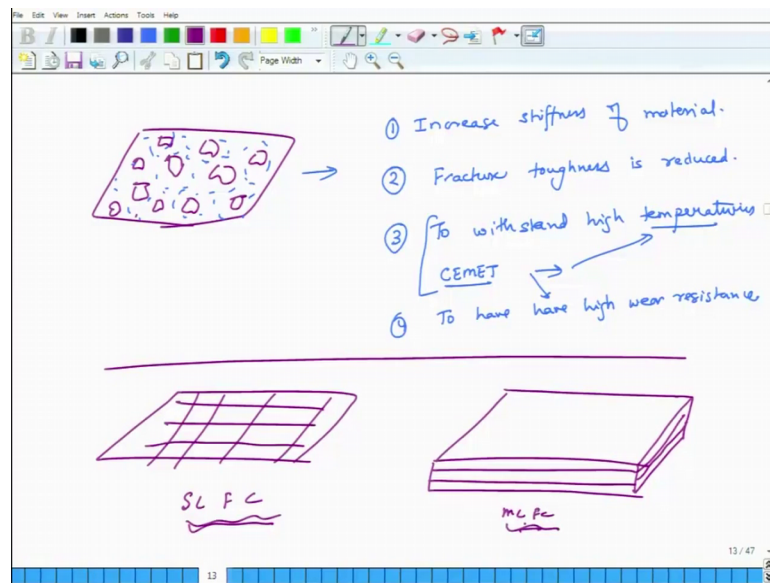 File Edit View Insert Actions Tools Help
B I
Page Width
① Increase stiffness of material.
② Fracture toughness is reduced.
③ To withstand high temperatures
CEMET
④ To have have high wear resistance
SL F C
ML FC
13 / 47
13